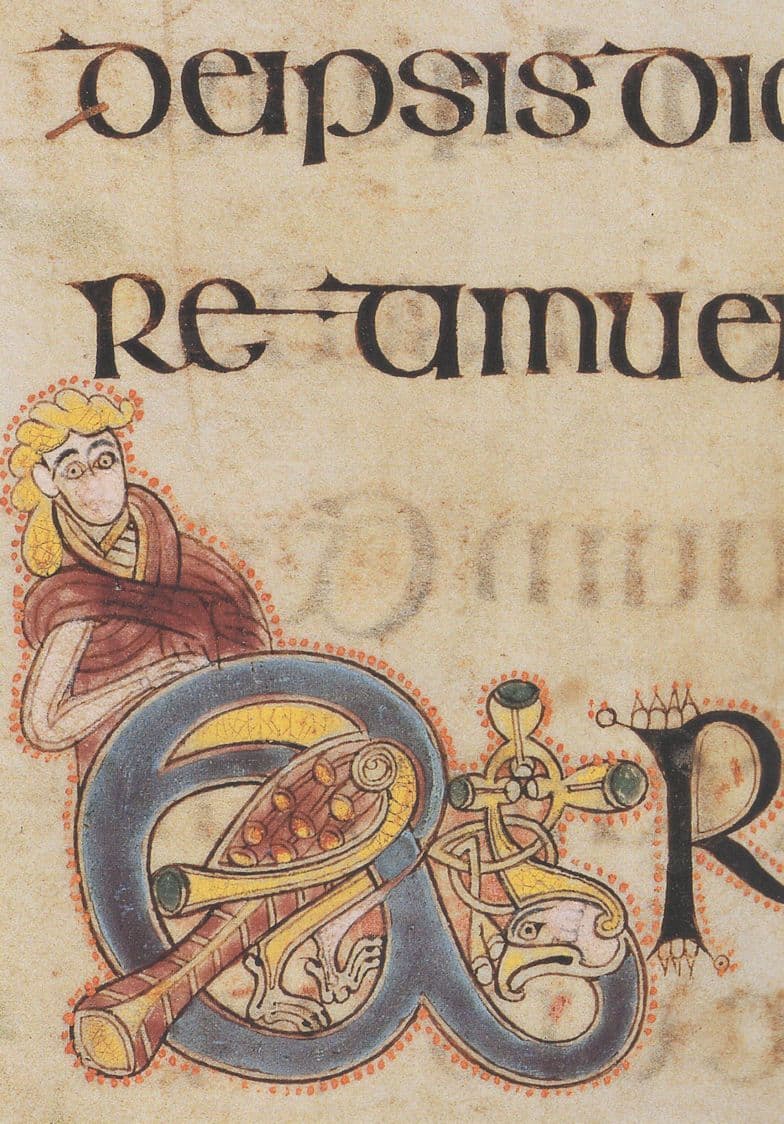 deipsis dic
re timue
et R